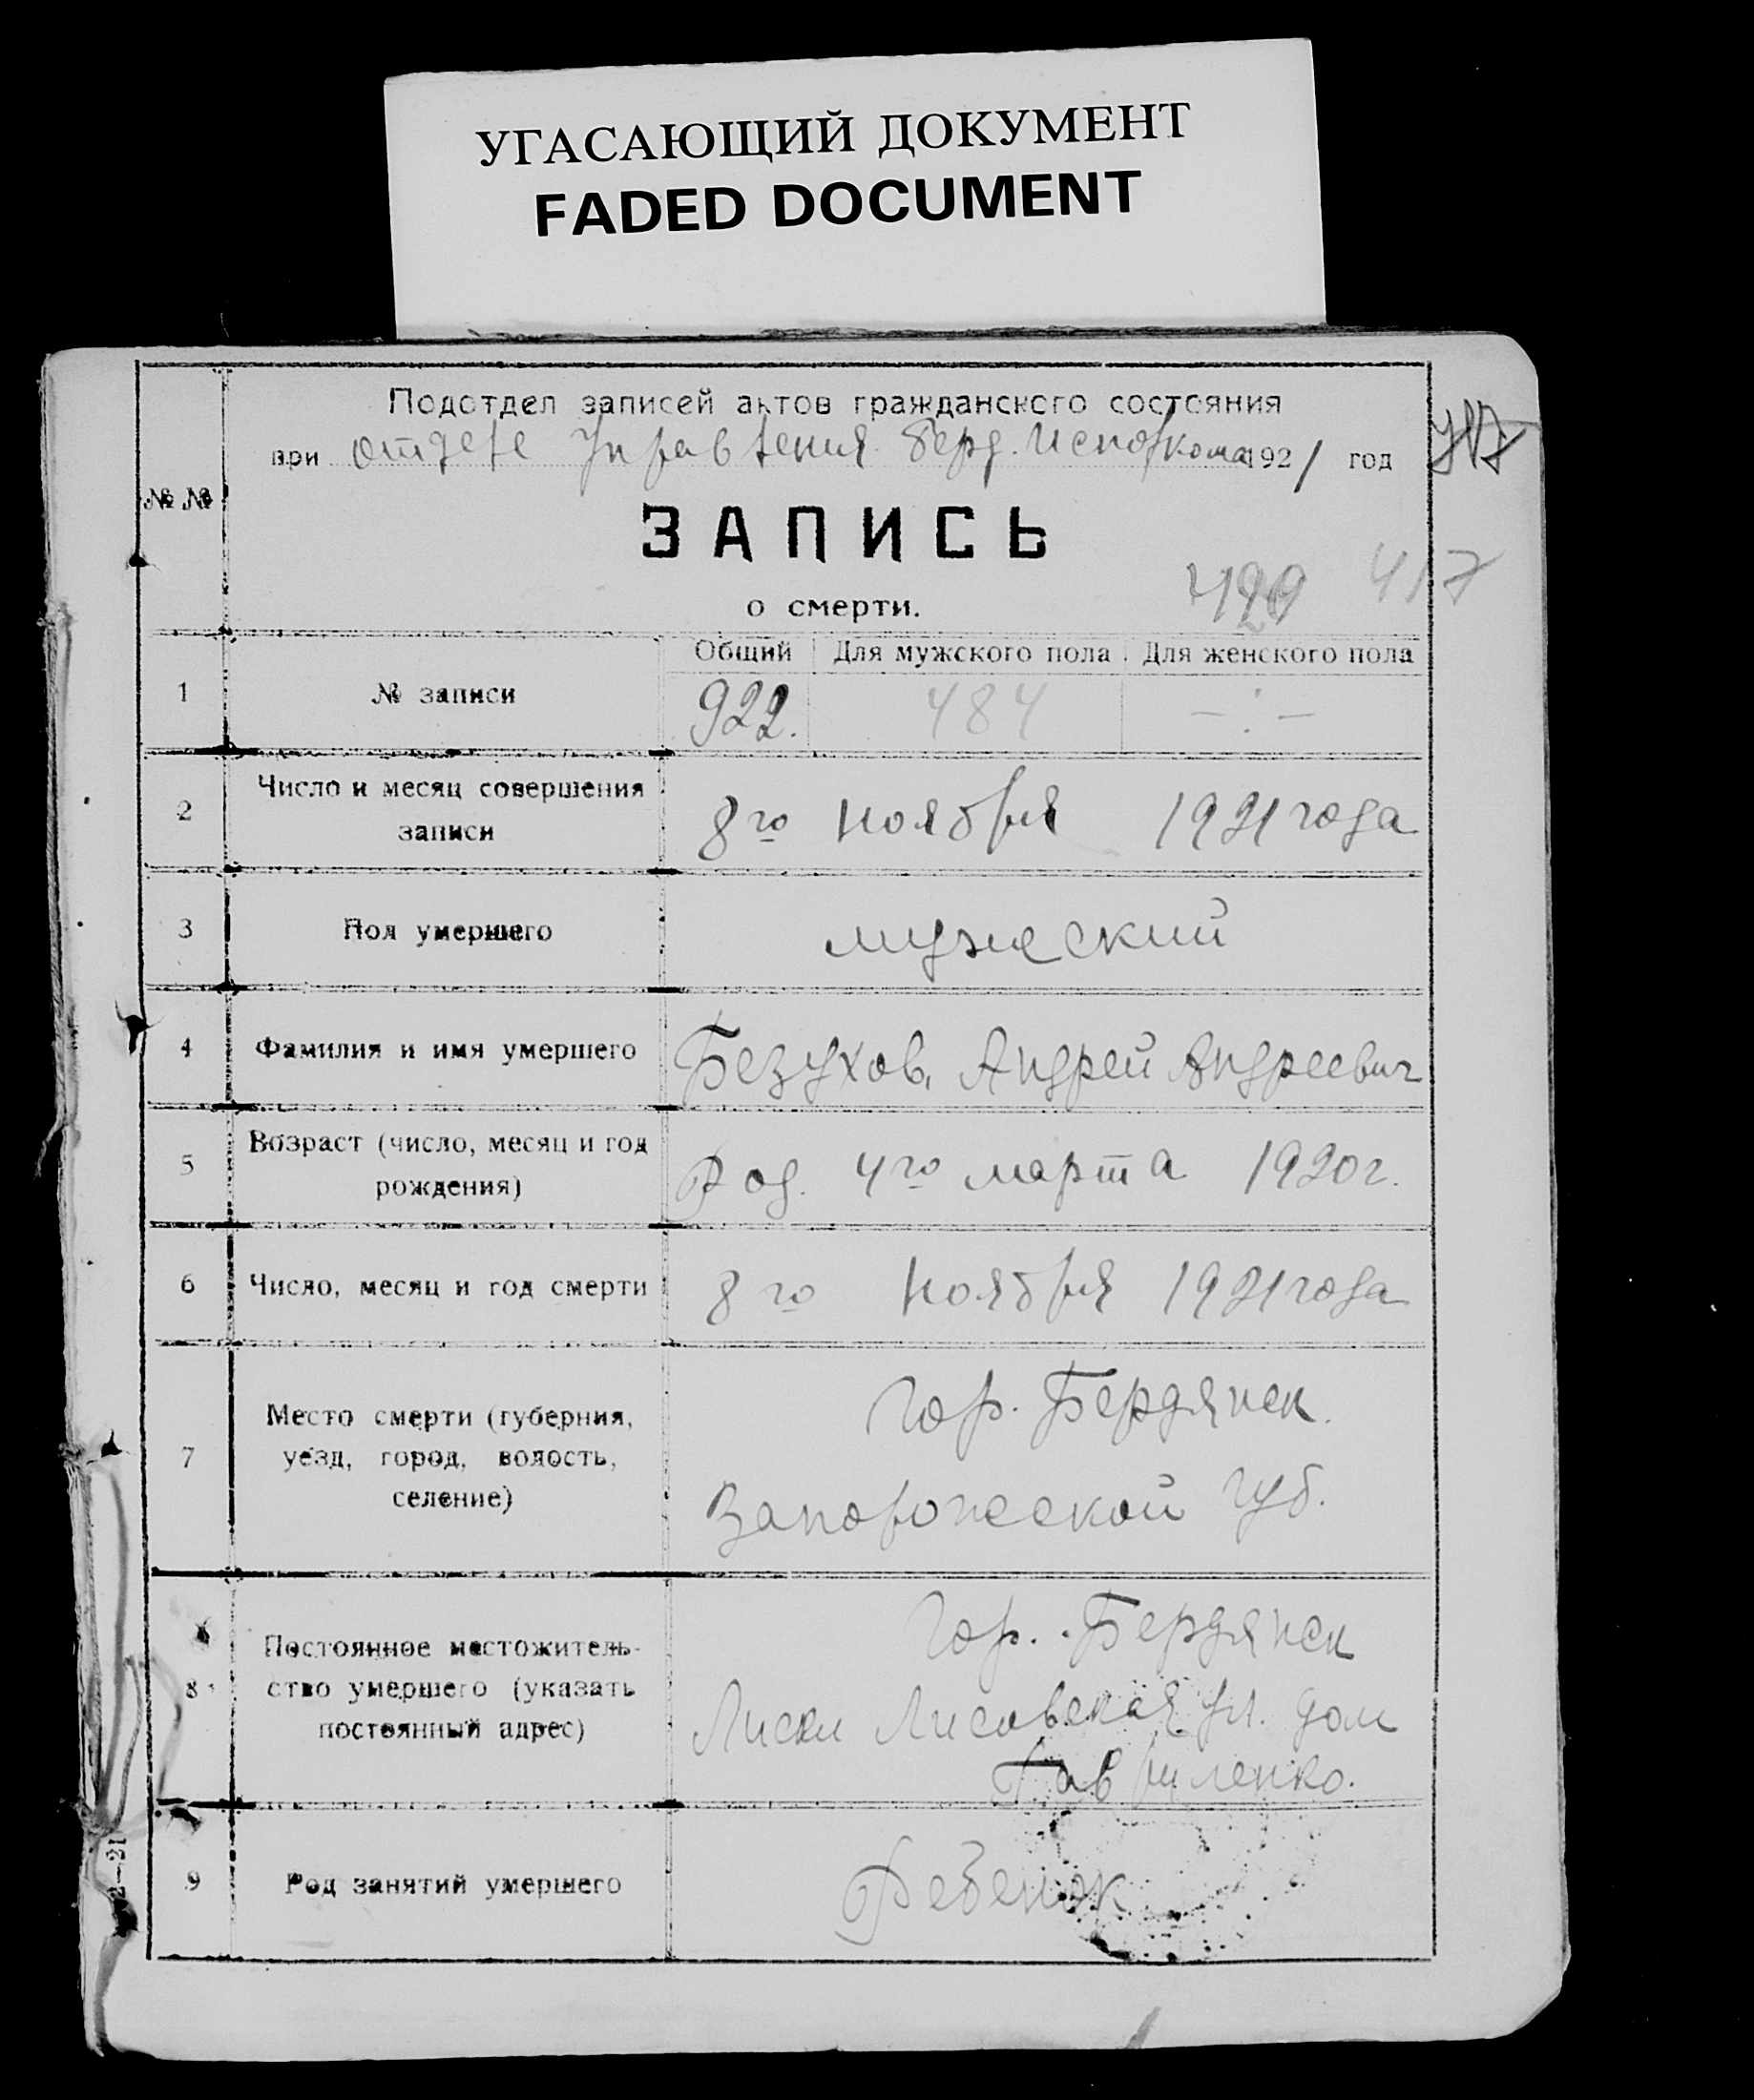 УГАСАЮЩИЙ ДОКУМЕНТ
FADED DOCUMENT
Подотдел записей актов гражданского состояния
при отделе Управления Берд. Исполкома 1921 год
№ №
ЗАПИСЬ
420 417
о смерти.
Общий Для мужского пола Для женского пола
1 № записи 922. 484 —:—
2 Число и месяц совершения
записи
8го ноября 1921 года
3 Пол умершего мужеский
4 Фамилия и имя умершего Безухов, Андрей Андреевич
5 Возраст (число, месяц и год
рождения)
Род. 4го марта 1920 г.
6 Число, месяц и год смерти 8го ноября 1921 года
7 Место смерти (губерния,
уезд, город, волость,
селение)
Гор. Бердянск.
Запорожской губ.
8 Постоянное местожитель-
ство умершего (указать
постоянный адрес)
Гор. Бердянск
Лиски Лисовская ул. дом
Гавриленко.
9 Род занятий умершего Ребенок
2—21